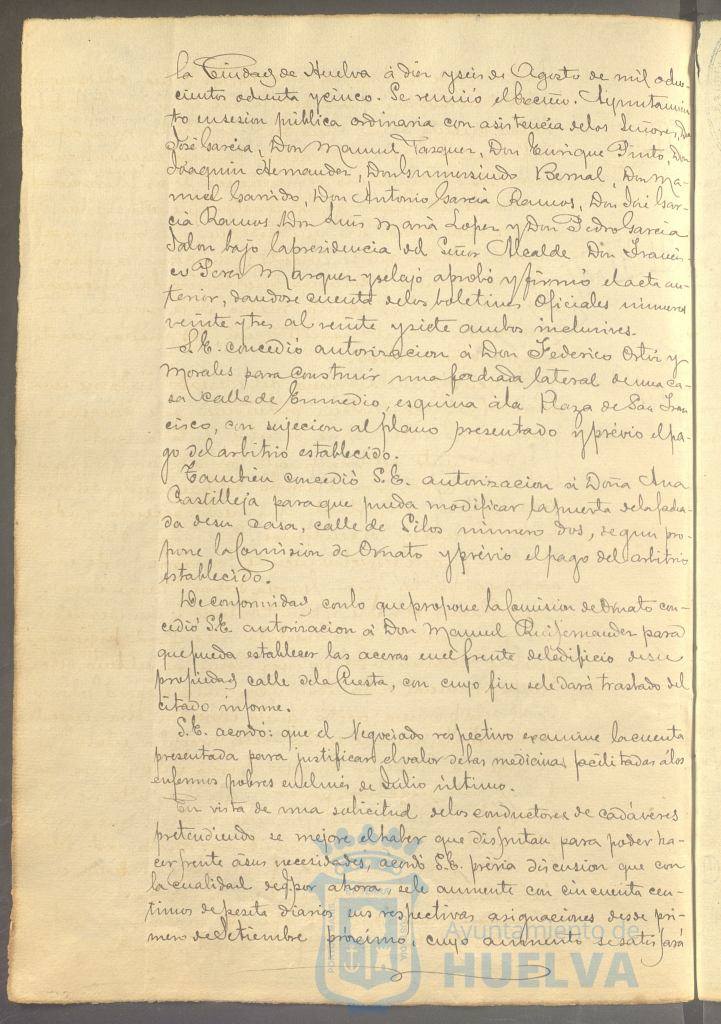 la Ciudad de Huelva á diez y seis de Agosto de mil ocho-
cientos ochenta y cinco. Se reunió el Excmo. Ayuntamien
to en sesion pública ordinaria con asistencia de los Señores, Don
José Garcia, Don Manuel Vazquez, Don Enrique Pinto, Don
Joaquin Hernandez, Don Gumersindo Bernal, Don Ma-
nuel Garrido, Don Antonio Garcia Ramos, Don José Gar-
cia Ramos, Don Luis Maria Lopez y Don Pedro Garcia
Jalon bajo la presidencia del Señor Alcalde Don Francis-
co Perez Marquez y se leyó aprobó y firmó el acta an-
terior, dandose cuenta de los boletines Oficiales números
veinte y tres al veinte y siete ambos inclusives.
S.E. concedió autorizacion á Don Federico Ortiz y
Morales para construir una fachada lateral de una ca-
sa calle de Enmedio, esquina á la Plaza de San Fran
cisco, con sujecion al plano presentado y prévio el pa-
go del arbitrio establecido.
Tambien concedió S.E. autorizacion á Doña Ana
Castilleja para que pueda modificar la puerta de la facha-
da de su casa, calle de Silos número dos, segun pro-
pone la Comision de Ornato y prévio el pago del arbitrio
establecido.
De conformidad con lo que propone la Comision de Ornato con-
cedió S.E. autorizacion á Don Manuel Ruifernandez para
que pueda establecer las aceras en el frente del edificio de su
propiedad calle de la Cuesta, con cuyo fin se le dará traslado del
citado informe.
S.E. acordó: que el Negociado respectivo examine la cuenta
presentada para justificar el valor de las medicinas facilitadas á los
enfermos pobres en el més de Julio último.
En vista de una solicitud de los conductores de cadáveres
pretendiendo se mejore el haber que disfrutan para poder ha-
cer frente á sus necesidades, acordó S.E. prévia discusion que con
la cualidad de por ahora, se le aumente con cincuenta cen-
timos de peseta diarios sus respectivas asignaciones desde pri-
mero de Setiembre próximo, cuyo aumento se satisfará
Ayuntamiento de
HUELVA